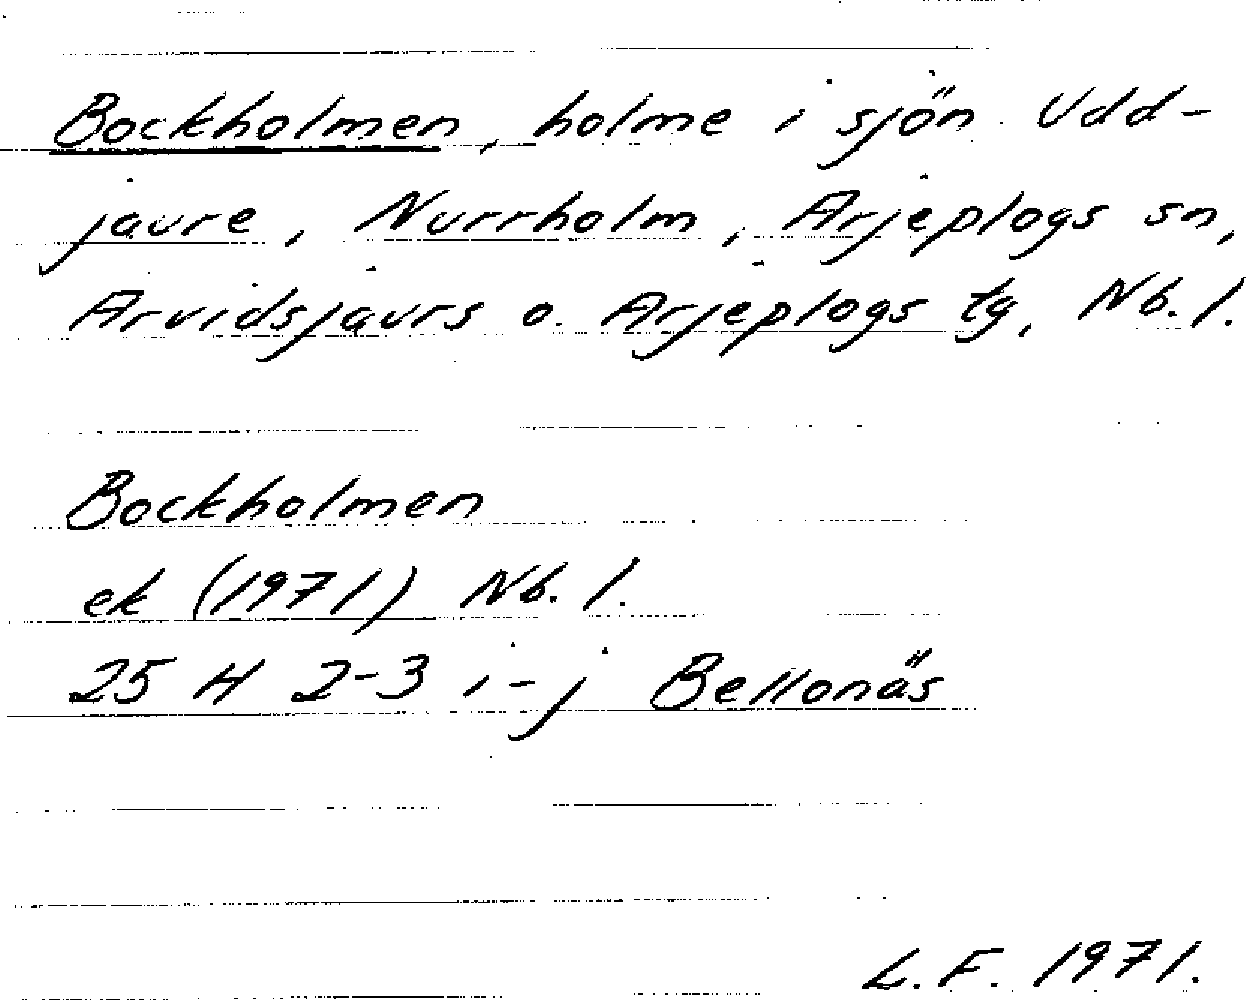 Bockholmen, holme i sjön Udd-
jaure, Nurrholm, Arjeplogs sn,
Arvidsjaurs o. Arjeplogs tg, Nb. l.
Bockholmen
ek (1971) Nb. l.
25 H 2-3 i-j Bellonäs
L.F. 1971.